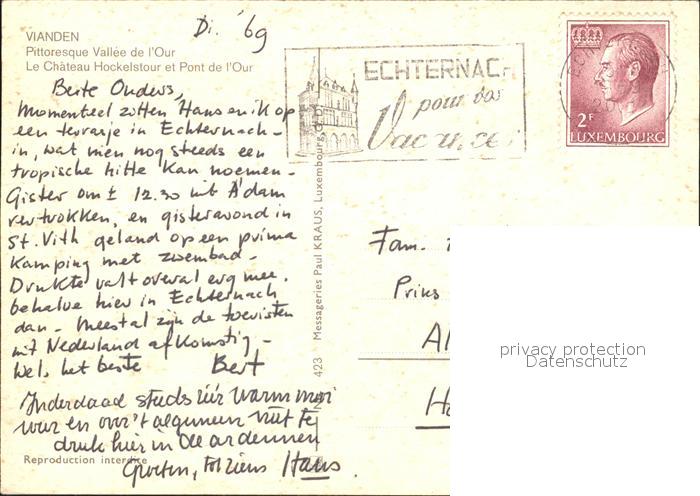 VIANDEN
Pittoresque Vallée de l'Our
Le Château Hockelstour et Pont de l'Our
Di. '69
ECHTERNACH
pour vos
Vacances
2F
LUXEMBOURG
Beste Ouders,
Momenteel zitten Hans en ik op
een terrasje in Echternach -
in, wat men nog steeds een
tropische hitte kan noemen -
Gister om ± 12.30 uit A'dam
vertrokken, en gisteravond in
St. Vith geland op een prima
kamping met zwembad -
Drukte valt overal erg mee.
behalve hier in Echternach
dan - meestal zijn de toeristen
uit Nederland afkomstig -
Wel, het beste Bert
Inderdaad steeds zéér warm mooi
weer en over 't algemeen niet te
druk hier in de ardennen
Groeten, tot ziens Hans.
Reproduction interdite
423 Messageries Paul KRAUS, Luxembourg
Fam.
Prins
Al
H
privacy protection
Datenschutz